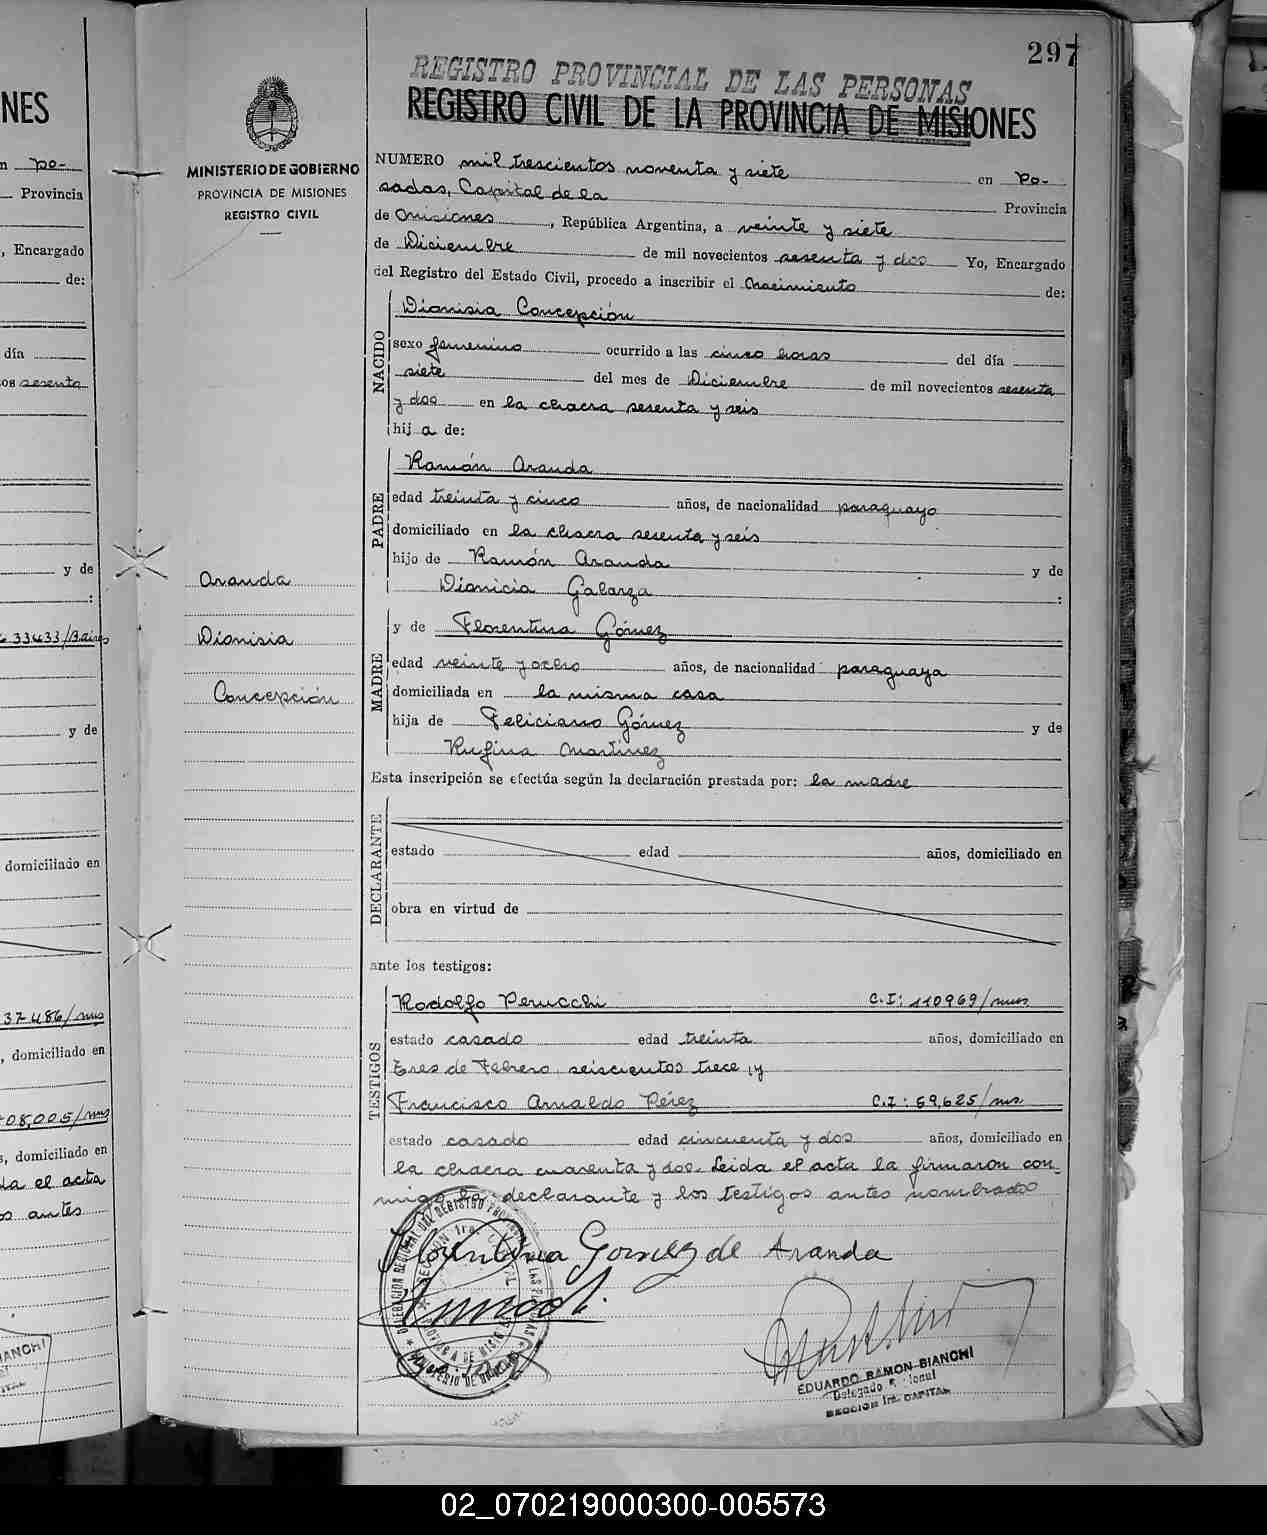 NES
n po-
Provincia
, Encargado
de:
día
os sesenta
y de
:
33433/Baires
y de
domiciliado en
37486/mns
, domiciliado en
08,005/mns
s, domiciliado en
da el acta
os antes
IANCHI
297
REGISTRO PROVINCIAL DE LAS PERSONAS
REGISTRO CIVIL DE LA PROVINCIA DE MISIONES
MINISTERIO DE GOBIERNO
PROVINCIA DE MISIONES
REGISTRO CIVIL
Aranda
Dionisia
Concepción
NUMERO mil trescientos noventa y siete en Po-
sadas, Capital de la Provincia
de Misiones, República Argentina, a veinte y siete
de Diciembre de mil novecientos sesenta y dos Yo, Encargado
del Registro del Estado Civil, procedo a inscribir el Nacimiento de:
NACIDO
Dionisia Concepción
sexo femenino ocurrido a las cinco horas del día
siete del mes de Diciembre de mil novecientos sesenta
y dos en la chacra sesenta y seis
hij a de:
PADRE
Ramón Aranda
edad treinta y cinco años, de nacionalidad paraguayo
domiciliado en la chacra sesenta y seis
hijo de Ramón Aranda y de
Dionicia Galarza :
MADRE
y de Florentina Gómez
edad veinte y ocho años, de nacionalidad paraguaya
domiciliada en la misma casa
hija de Feliciano Gómez y de
Rufina Martínez
Esta inscripción se efectúa según la declaración prestada por: la madre
DECLARANTE
estado edad años, domiciliado en
obra en virtud de
ante los testigos:
TESTIGOS
Rodolfo Perucchi C.I: 110969/mns
estado casado edad treinta años, domiciliado en
Tres de Febrero seiscientos trece, y
Francisco Arnaldo Pérez C.I: 59,625/mns
estado casado edad cincuenta y dos años, domiciliado en
la chacra cuarenta y dos. Leida el acta la firmaron con-
migo la declarante y los testigos antes nombrados
Florentina Gomez de Aranda
EDUARDO RAMON BIANCHI
SECCION 1ra. CAPITAL
02_070219000300-005573